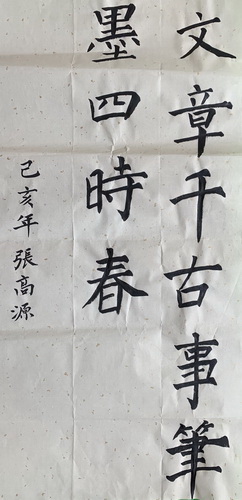 文章千古事筆
墨四時春
己亥年張高源